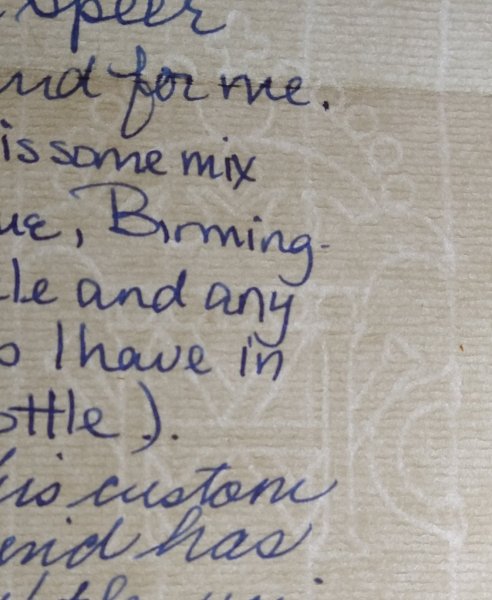 speer
for me.
is some mix
ue, Birming-
le and any
I have in
ottle).
is custom
end has